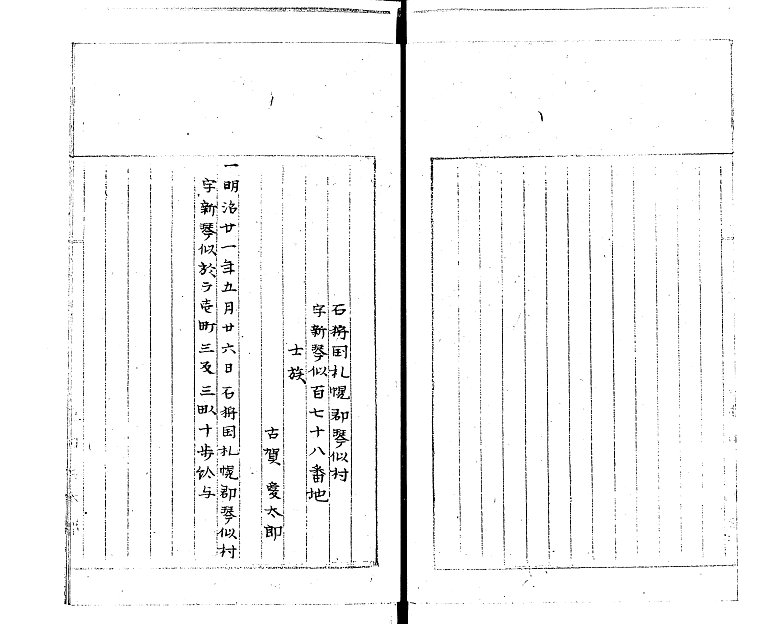 石狩国札幌郡琴似村
字新琴似百七十八番地
士族
古賀 愛太郎
一明治廿一年五月廿六日石狩国札幌郡琴似村
字新琴似於ラ壱町三反三畝十歩給与